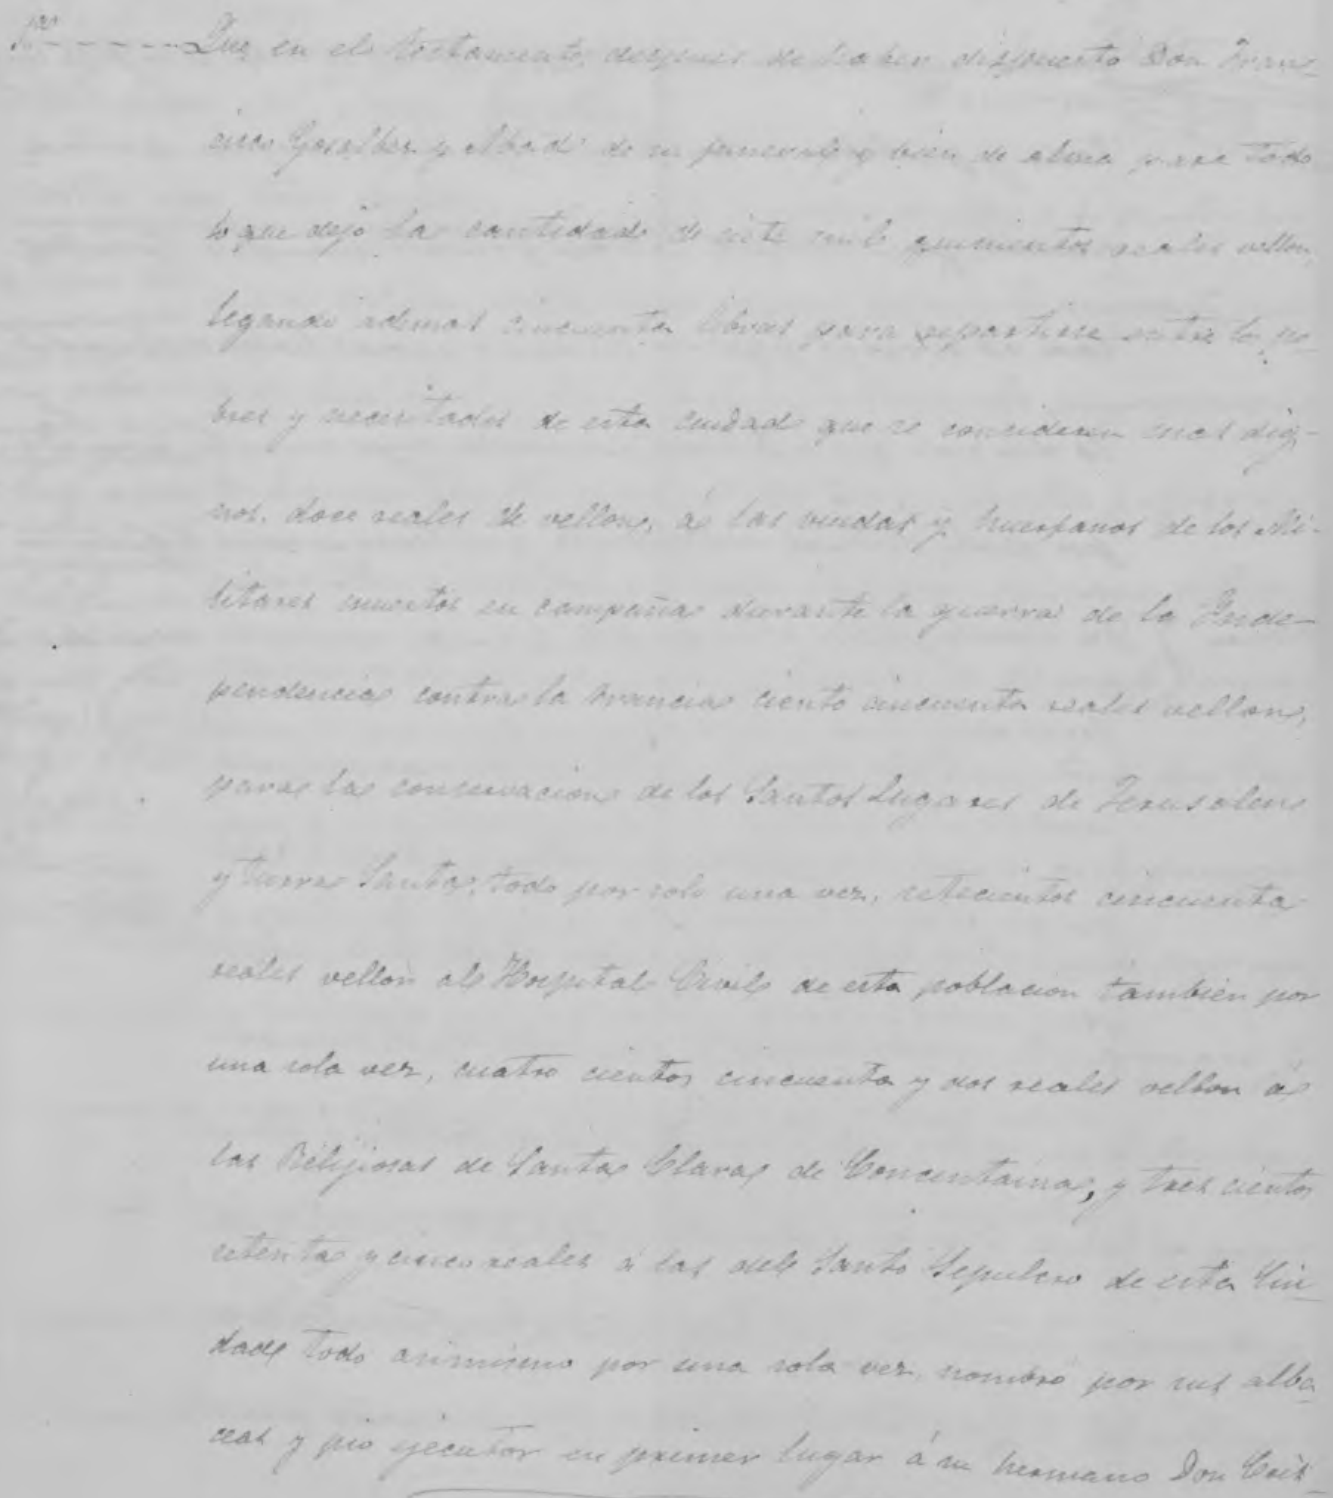 1º ------ Que en el testamento, despues de haber dispuesto Don Fran-
cisco Gosalbez y Abad de su funeral y bien de alma para todo
lo que dejó la cantidad de siete mil quinientos reales vellon,
legando ademas cincuenta libras para repartirse entre los po-
bres y necesitados de esta ciudad que se consideren mas dig-
nos. doce reales de vellon, á las viudas y huerfanos de los Mi-
litares muertos en campaña durante la guerra de la Inde-
pendencia contra la Francia ciento cincuenta reales vellon,
para la conservacion de los Santos Lugares de Jerusalen
y tierra Santa, todo por solo una vez, setecientos cincuenta
reales vellon al Hospital Civil de esta poblacion tambien por
una sola vez, cuatro cientos cincuenta y dos reales vellon á
las Religiosas de Santa Clara de Concentaina, y tres cientos
setenta y cinco reales á las del Santo Sepulcro de esta Ciu-
dad todo asimismo por una sola vez, nombró por sus alba-
ceas y pio ejecutor en primer lugar á su hermano Don Cris-